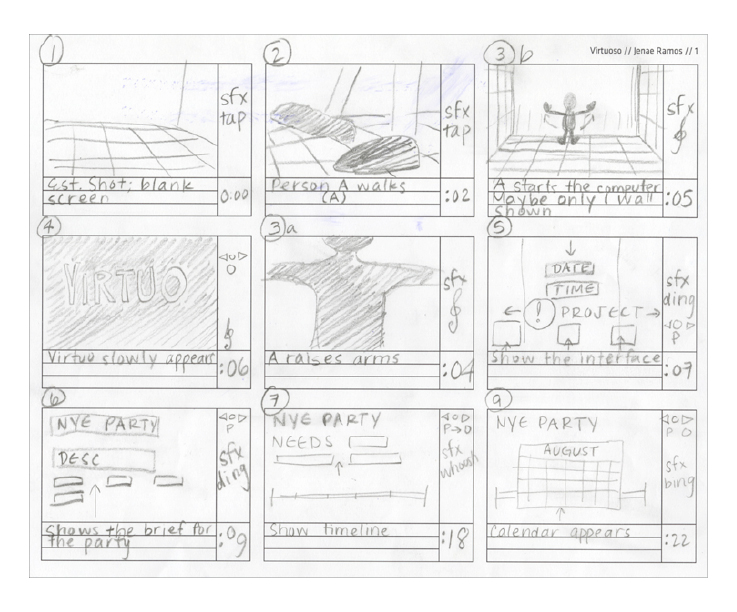 Virtuoso // Jenae Ramos // 1
1
sfx
tap
Est. Shot; blank
screen
0:00
2
sfx
tap
Person A walks
(A)
:02
3 b
sfx
A starts the computer
Maybe only 1 wall
shown
:05
4
VIRTUO
Virtuo slowly appears
:06
3 a
sfx
A raises arms
:04
5
DATE
TIME
! PROJECT
sfx
ding
P
Show the interface
:07
6
NYE PARTY
DESC
P
sfx
ding
Shows the brief for
the party
:09
7
NYE PARTY
NEEDS
P→O
sfx
whoosh
Show timeline
:18
9
NYE PARTY
AUGUST
P O
sfx
bing
Calendar appears
:22